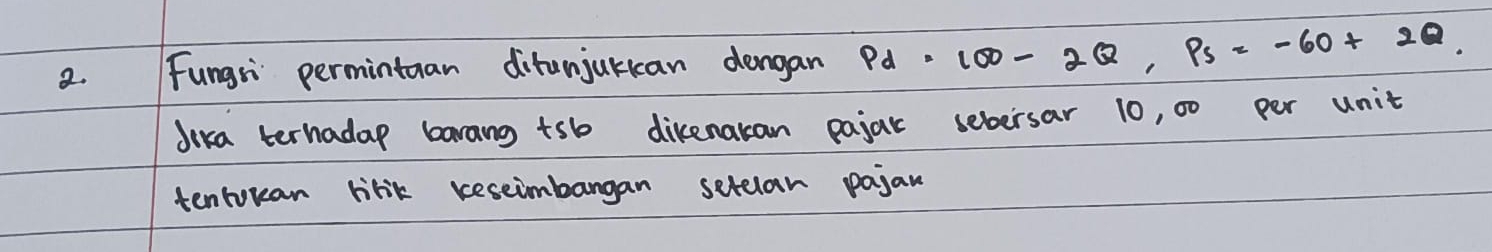 2. Fungsi permintaan ditunjukkan dengan Pd = 100 - 2Q, Ps = -60 + 2Q.
Jika terhadap barang tsb dikenakan pajak sebersar 10,00 per unit
tentukan titik keseimbangan setelah pajak